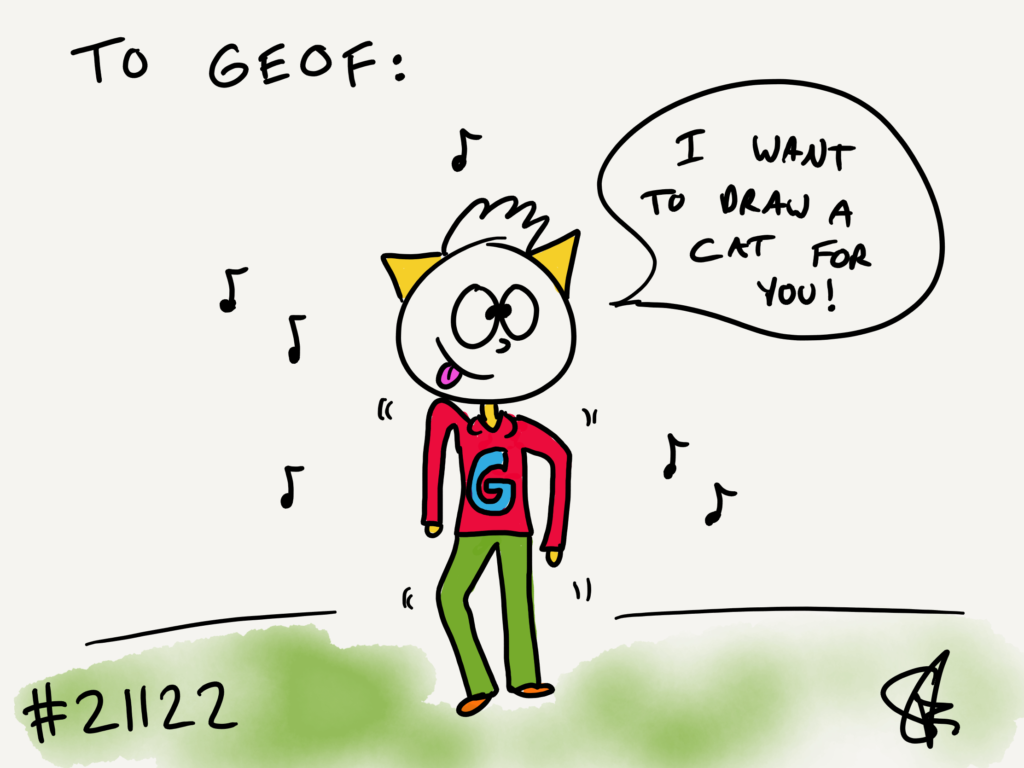 TO GEOF:
I WANT
TO DRAW A
CAT FOR
YOU!
G
#21122